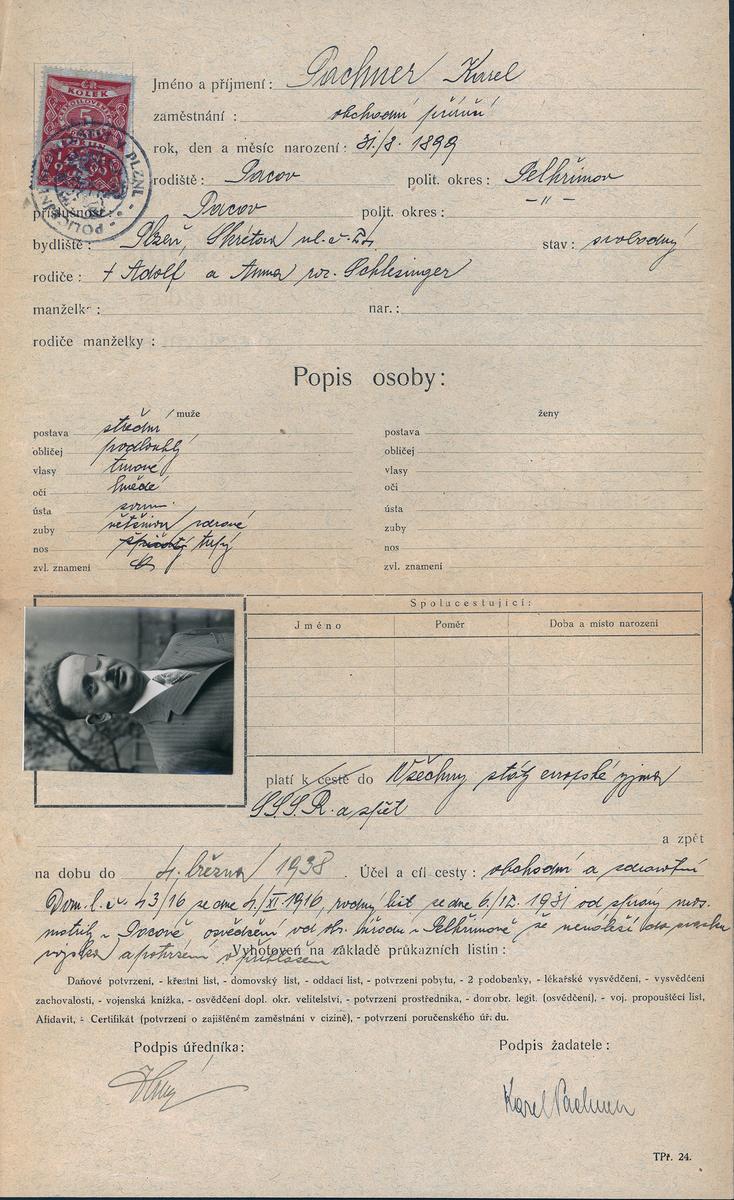 ČR
KOLEK
5
POLICEJNÍ V PLZNI
Jméno a příjmení: Pachner Karel
zaměstnání: obchodní příručí
rok, den a měsíc narození: 31./8. 1899
rodiště: Pacov polit. okres: Pelhřimov
příslušnost: Pacov polit. okres: -"-
bydliště: Plzeň, Skrétova ul. č. stav: svobodný
rodiče: † Adolf a Anna roz. Schlesinger
manželka: nar.:
rodiče manželky:
Popis osoby:
muže ženy
postava střední postava
obličej podlouhlý obličej
vlasy tmavé vlasy
oči hnědé oči
ústa soum. ústa
zuby většinou zdravé zuby
nos tupý nos
zvl. znamení zvl. znamení
Spolucestující:
Jméno Poměr Doba a místo narození
platí k cestě do Všechny státy evropské vyjma
S.S.S.R. a zpět
a zpět
na dobu do 4. března 1938. Účel a cíl cesty: obchodní a zdravotní
Dom. l. č. 43/16 ze dne 4./XI 1916, rodný list ze dne 6./IX. 1931 od správy
matriky v Pacově osvědčení od okr. úřadu v Pelhřimově že nenáleží do svazku
vojska a potvrzení o přihlášení
Vyhotoven na základě průkazních listin:
Daňové potvrzení, - křestní list, - domovský list, - oddací list, - potvrzení pobytu, - 2 podobenky, - lékařské vysvědčení, - vysvědčení
zachovalosti, - vojenská knížka, - osvědčení dopl. okr. velitelství, - potvrzení prostředníka, - dom obr. legit. (osvědčení), - voj. propouštěcí list,
Afidavit, - Certifikát (potvrzení o zajištěném zaměstnání v cizině), - potvrzení poručenského úřadu.
Podpis úředníka: Podpis žadatele:
Karel Pachner
TPř. 24.